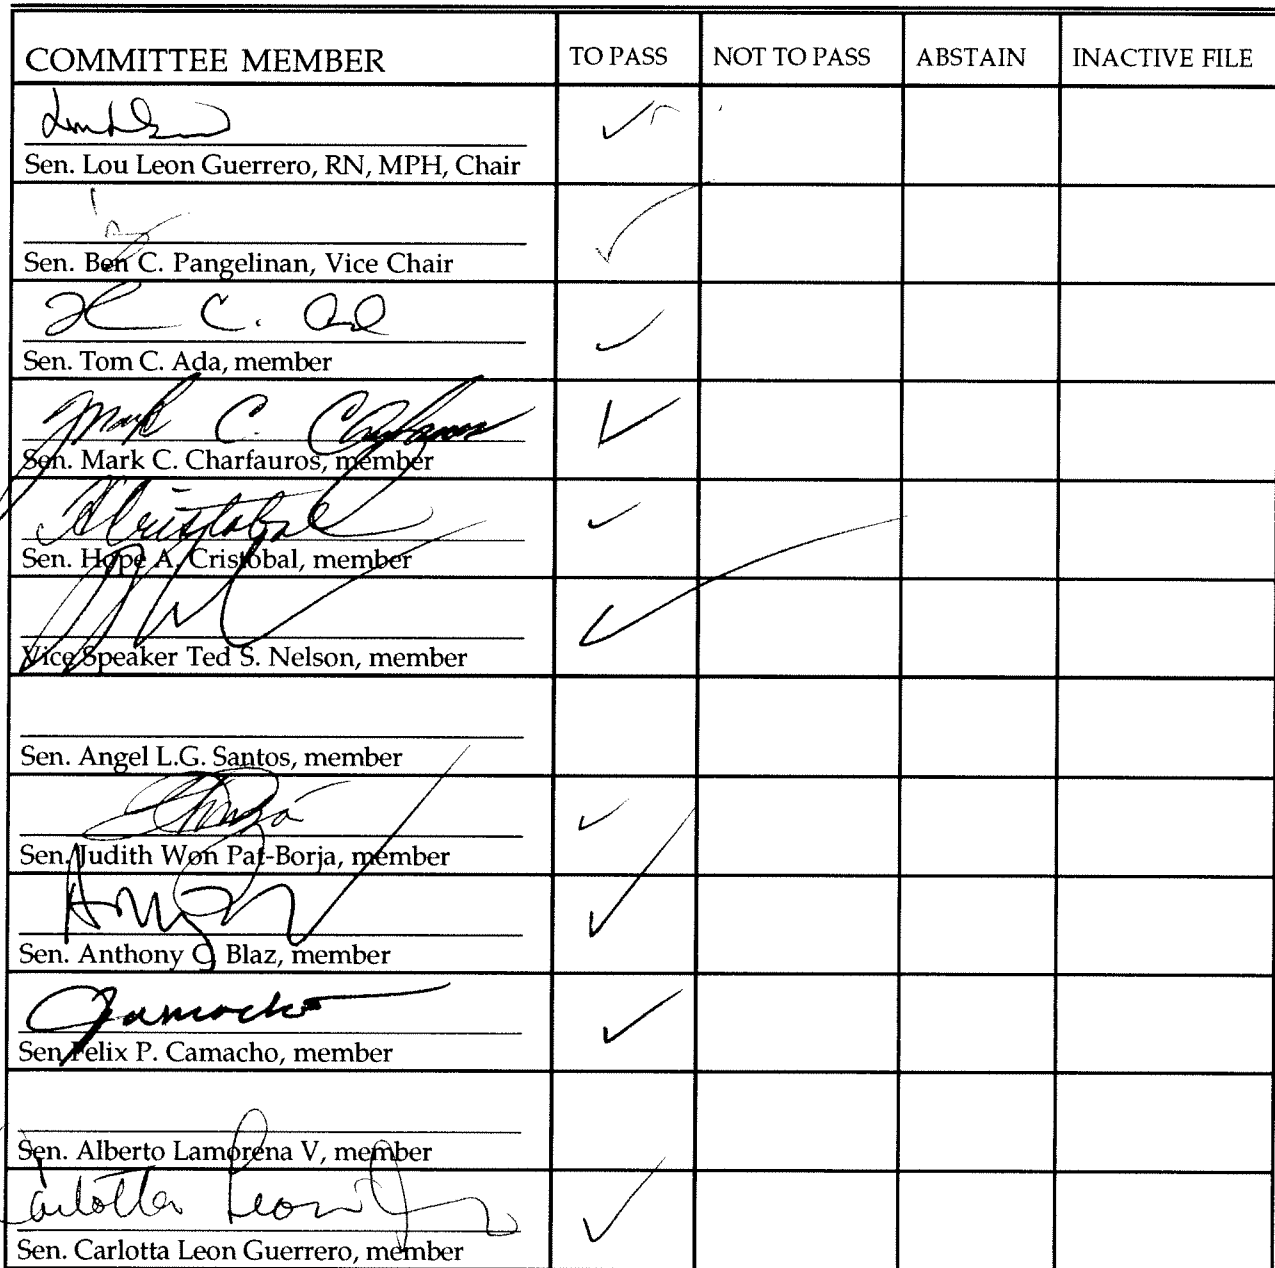 COMMITTEE MEMBER TO PASS NOT TO PASS ABSTAIN INACTIVE FILE
Sen. Lou Leon Guerrero, RN, MPH, Chair
Sen. Ben C. Pangelinan, Vice Chair
Sen. Tom C. Ada, member
Mark C. Charfauros
Sen. Mark C. Charfauros, member
HCristobal
Sen. Hope A. Cristobal, member
Vice Speaker Ted S. Nelson, member
Sen. Angel L.G. Santos, member
Sen. Judith Won Pat-Borja, member
Sen. Anthony C. Blaz, member
Camacho
Sen. Felix P. Camacho, member
Sen. Alberto Lamorena V, member
Carlotta Leon
Sen. Carlotta Leon Guerrero, member